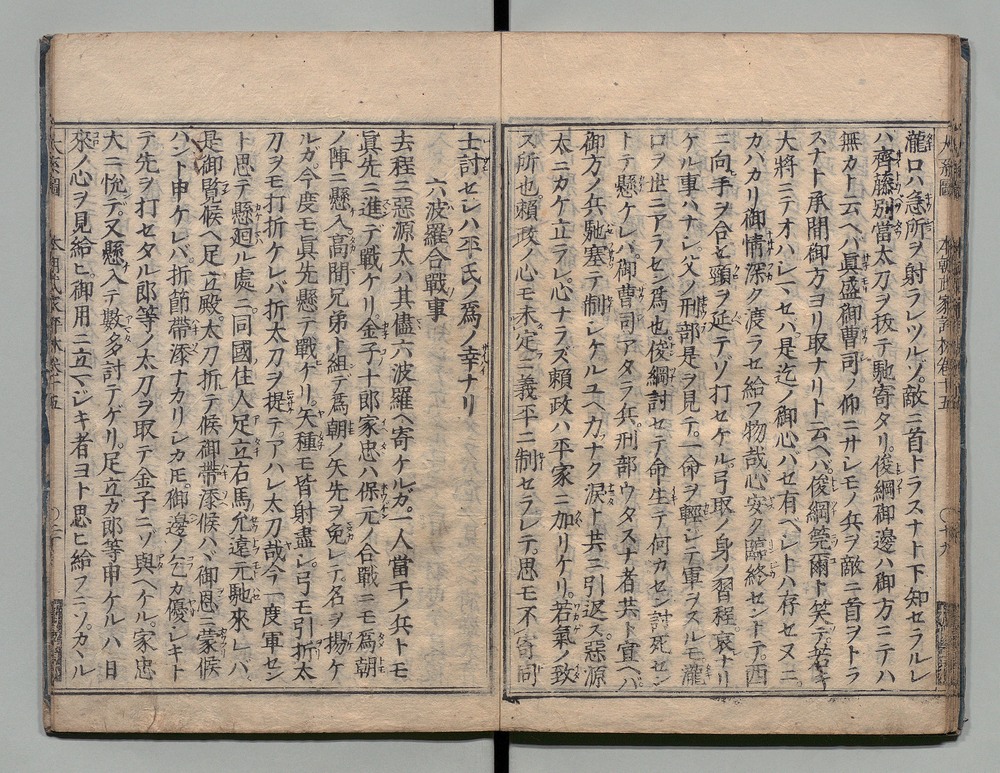 瀧口ハ急所ヲ射ラレツルゾ。敵ニ首トラスナト下知セラルレ
ハ。齊藤別當太刀ヲ拔テ馳寄タリ。俊綱御邊ハ御方ニテハ
無カト云ヘハ。眞盛御曹司ノ仰ニサレモノ兵ヲ敵ニ首ヲトラ
スナト承聞御方ヨリ取ナリト云ヘハ。俊綱莞爾ト笑テ。若キ
大將ニテオハシマセハ。是迄ノ御心バセ有ベシトハ存セヌニ。
カハカリ御情深ク渡ラセ給フ物哉心安ク臨終セントテ。西
ニ向手ヲ合セ頸ヲ延ヘテソ打セケル。弓取ノ身ノ習程。哀ナリ
ケル車ハナシ父ノ刑部是ヲ見テ。一命ヲ輕シテ軍ヲスルモ瀧
口ヲ世ニアラセン爲也俊綱討セテ命生テ何カセン討死セン
トテ懸ケレバ。御曹司アタラ兵。刑部ウタスナ者共ト宣ヘハ
御方ノ兵馳塞テ制シケルユヘ力ナク涙ト共ニ引返ス。惡源
太ニカケ立ラレ。心ナラズ賴政ハ平家ニ加リケリ。若氣ノ致
ス所也賴政ノ心モ未定ニ義平ニ制セラレテ。思モ不寄同
士討セシハ平氏ノ爲ノ幸ナリ
六波羅合戰事
去程ニ惡源太ハ其儘六波羅ヘ寄ケルガ。一人當千ノ兵トモ
眞先ニ進デ戰ケリ。金子十郎家忠ハ保元ノ合戰ニモ爲朝
ノ陣ニ懸入高間兄弟ト組テ爲朝ノ矢先ヲ免レテ。名ヲ揚ケ
ルガ今度モ眞先懸テ戰ケリ。矢種モ皆射盡シ。弓モ引折太
刀ヲモ打折ケレバ折太刀ヲ提テアハレ太刀哉今一度軍セン
ト思テ懸廻ル處ニ同國住人足立右馬允遠元馳來レバ。
是御覧候ヘ足立殿。太刀折テ候御帶添候ハバ御恩ニ蒙候
ハント申ケレバ。折節帶添ナカリシカモ。御邊ノ乞カ優シキト
テ先ヲ打セタル郎等ノ太刀ヲ取テ金子ニゾ與ヘケル。家忠
大ニ悅デ。又懸入テ數多討テゲリ。足立カ郎等申ケルハ日
來ノ心ヲ見給ヒ。御用ニ立マジキ者ヨト思ヒ給フニゾ。カヽル